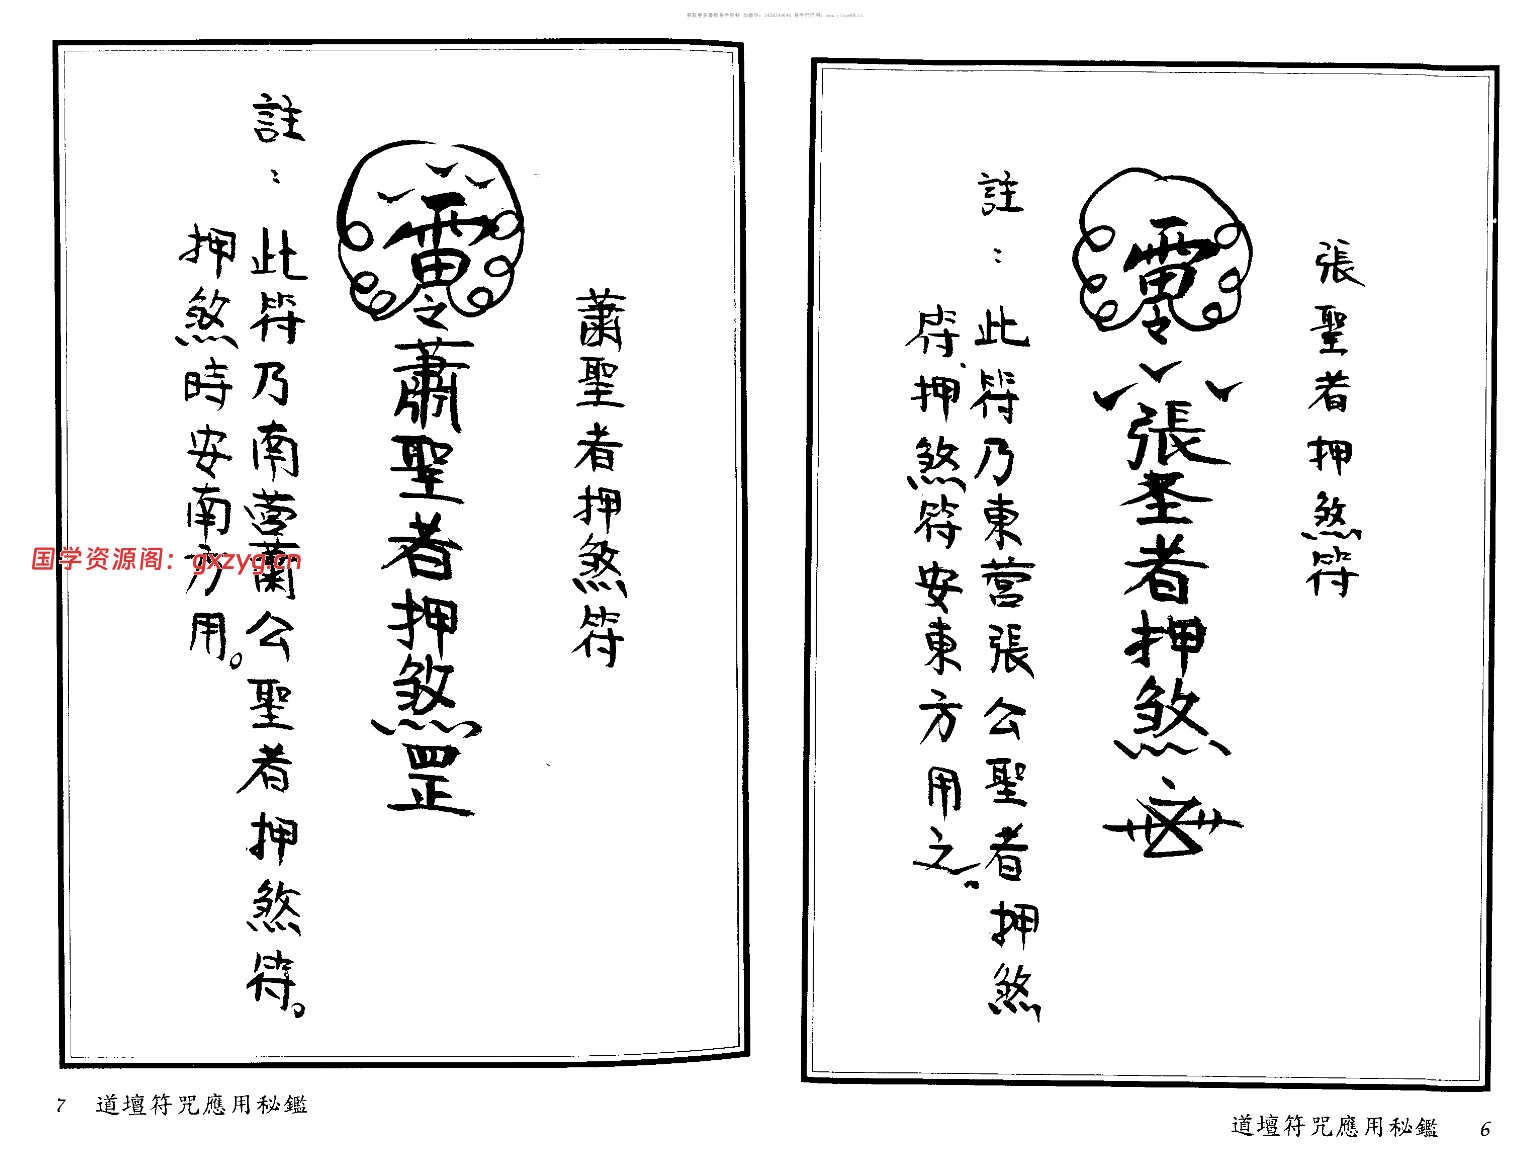 張聖者押煞符
雷令張圣者押煞
註：此符乃東營張公聖者押煞
符、押煞符安東方用之。
道壇符咒應用秘鑑 6
蕭聖者押煞符
雷令蕭聖者押煞罡
註：此符乃南營蕭公聖者押煞符。
押煞時安南方用。
7 道壇符咒應用秘鑑
国学资源阁：gxzyg.cn